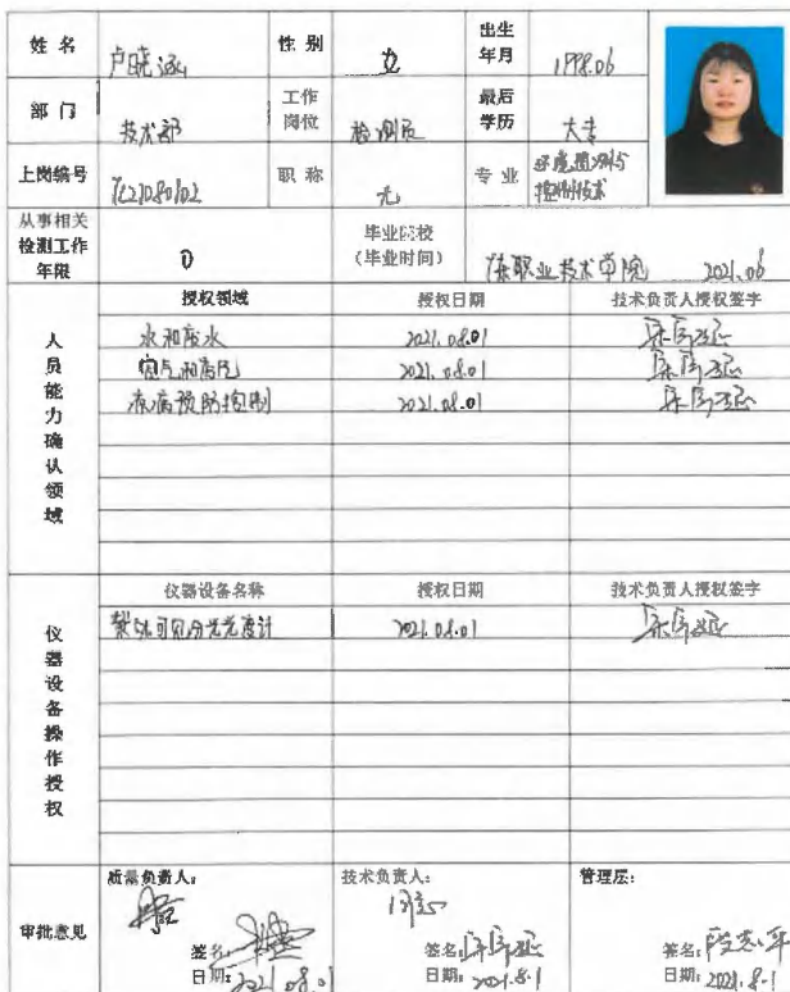 姓 名 卢晓涵 性 别 女 出生年月 1998.06
部 门 技术部 工作岗位 检测员 最后学历 大专
上岗编号 TL21080102 职 称 无 专 业 环境监测与控制技术
从事相关检测工作年限 0 毕业院校(毕业时间) 职业技术学院 2021.06
人员能力确认领域
授权领域 授权日期 技术负责人授权签字
水和废水 2021.08.01
空气和废气 2021.08.01
疾病预防控制 2021.08.01
仪器设备操作授权
仪器设备名称 授权日期 技术负责人授权签字
紫外可见分光光度计 2021.08.01
审批意见
质量负责人: 技术负责人: 管理层:
同意
签名: 签名: 签名:
日期: 2021.08.01 日期: 2021.8.1 日期: 2021.8.1